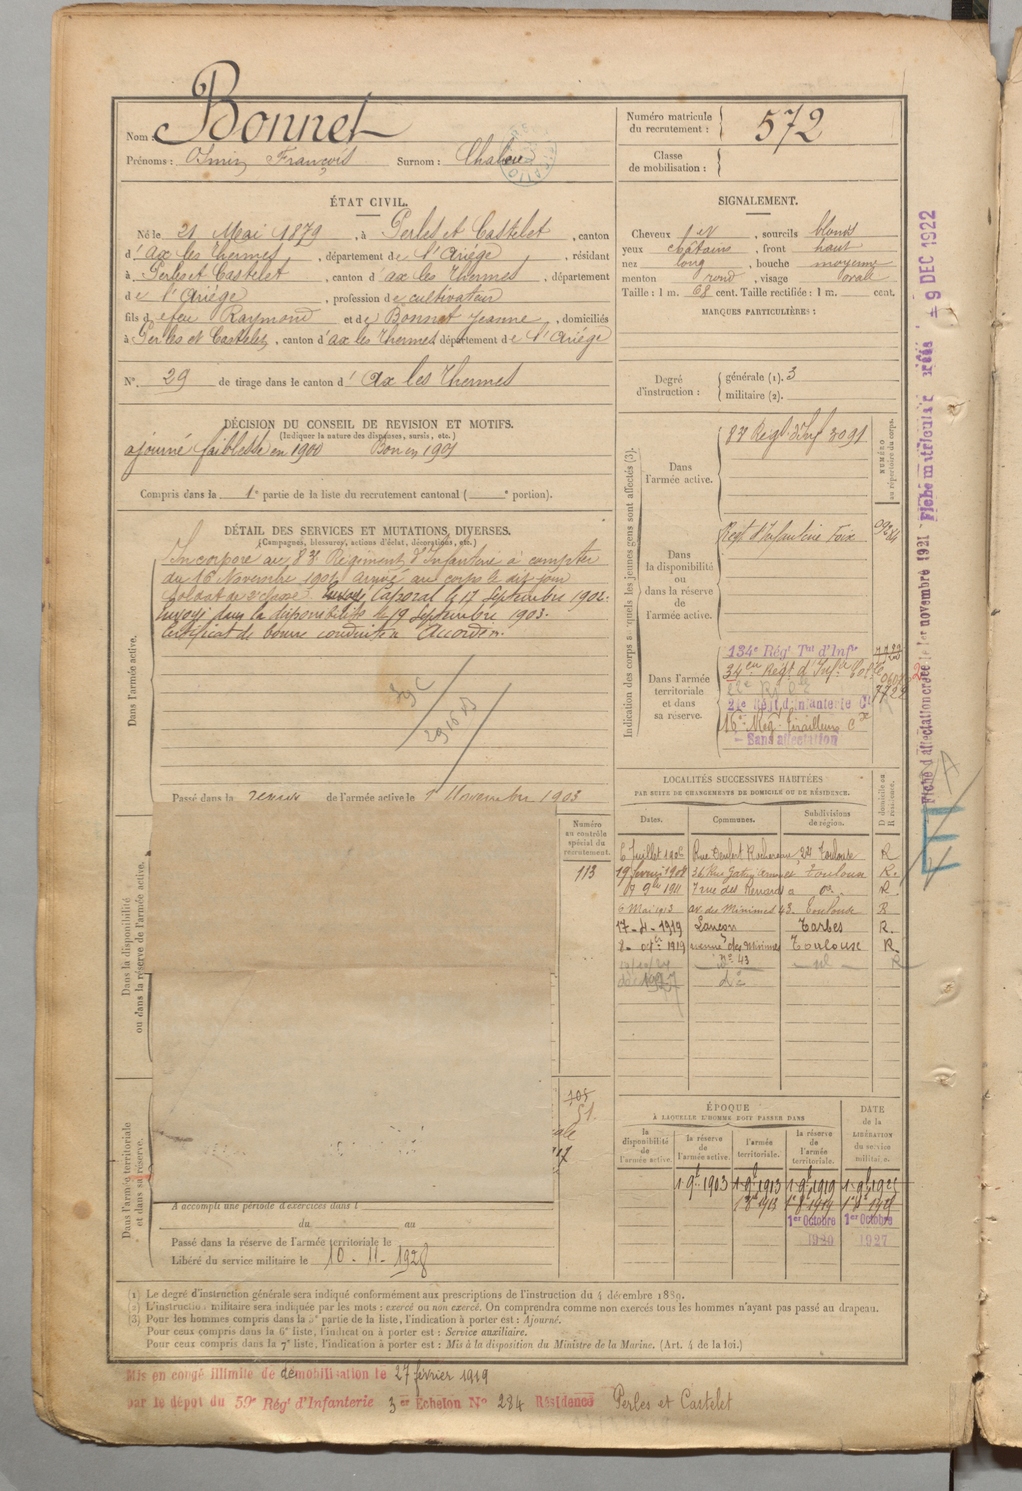 Nom : Bonnet
Prénoms : François Surnom : Chabre
Numéro matricule du recrutement : 572
Classe de mobilisation :
ÉTAT CIVIL.
Né le 21 Mai 1879, à Perles et Castelet, canton
d'ax les Thermes, département de l'Ariège, résidant
à Perles et Castelet, canton d'ax les Thermes, département
de l'Ariège, profession de cultivateur
fils de feu Raymond et de Bonnet Jeanne, domiciliés
à Perles et Castelet, canton d'ax les Thermes département de l'Ariège
N°. 29 de tirage dans le canton d'Ax les Thermes
SIGNALEMENT.
Cheveux , sourcils blonds
yeux chatains, front haut
nez long, bouche moyenne
menton rond, visage ovale
Taille : 1 m. 68 cent. Taille rectifiée : 1 m. cent.
MARQUES PARTICULIÈRES :
Degré d'instruction : générale (1). 3
militaire (2).
DÉCISION DU CONSEIL DE REVISION ET MOTIFS.
(Indiquer la nature des dispenses, sursis, etc.)
ajourné faiblesse en 1900 Bon en 1901
Compris dans la 1e partie de la liste du recrutement cantonal ( e portion).
DÉTAIL DES SERVICES ET MUTATIONS DIVERSES.
(Campagnes, blessures, actions d'éclat, décorations, etc.)
Dans l'armée active.
Incorporé au 83e Régiment d'Infanterie à compter
du 16 Novembre 1901 arrivé au corps le dit jour
soldat de 2e classe. Caporal le 17 Septembre 1902.
Envoyé dans la disponibilité le 19 Septembre 1903.
Certificat de bonne conduite Accordé.
Passé dans la réserve de l'armée active le 1 Novembre 1903
Indication des corps auxquels les jeunes gens sont affectés (3).
NUMÉRO au répertoire du corps.
Dans l'armée active.
83e Régt d'Inf 3091
Dans la disponibilité ou dans la réserve de l'armée active.
Regt d'Infanterie Foix
Dans l'armée territoriale et dans sa réserve.
134e Régt Tal d'Infie
34e Regt d'Infie Colle
21e Régt d'Infanterie Cle
16e Reg. Tirailleurs
- Sans affectation
LOCALITÉS SUCCESSIVES HABITÉES
PAR SUITE DE CHANGEMENTS DE DOMICILE OU DE RÉSIDENCE.
Dates. Communes. Subdivisions de région. D domicile ou R résidence.
6 Juillet Rue Denfert Rochereau, 24 Toulouse R
19 février 1908 Toulouse R.
1911 7 rue des Renards R.
6 Mai 1913 av. des Minimes 43. Toulouse R
17-4-1919 Lançon Tarbes R.
8- 1919 avenue des Minimes Toulouse R.
Do 43
Dans la disponibilité ou dans la réserve de l'armée active.
Numéro au contrôle spécial du recrutement.
113
Dans l'armée territoriale et dans sa réserve.
51
A accompli une période d'exercices dans l
du au
Passé dans la réserve de l'armée territoriale le
Libéré du service militaire le 10-11-1928
ÉPOQUE
À LAQUELLE L'HOMME DOIT PASSER DANS
DATE de la LIBÉRATION du service militaire.
la disponibilité de l'armée active. la réserve de l'armée active. l'armée territoriale. la réserve de l'armée territoriale.
1 9e 1903 1 9e 1913 1 9e 1919
1er Octobre 1er Octobre
1920 1927
(1) Le degré d'instruction générale sera indiqué conformément aux prescriptions de l'instruction du 4 décembre 1889.
(2) L'instruction militaire sera indiquée par les mots : exercé ou non exercé. On comprendra comme non exercés tous les hommes n'ayant pas passé au drapeau.
(3) Pour les hommes compris dans la 5e partie de la liste, l'indication à porter est : Ajourné.
Pour ceux compris dans la 6e liste, l'indication à porter est : Service auxiliaire.
Pour ceux compris dans la 7e liste, l'indication à porter est : Mis à la disposition du Ministre de la Marine. (Art. 4 de la loi.)
Mis en congé illimité de démobilisation le 27 février 1919
par le dépôt du 59e Régt d'Infanterie 3er Echelon No 284 Résidence Perles et Castelet
Fiche d'affectation créée le 1er novembre 1921 Fiche matricule créée - 9 DEC 1922